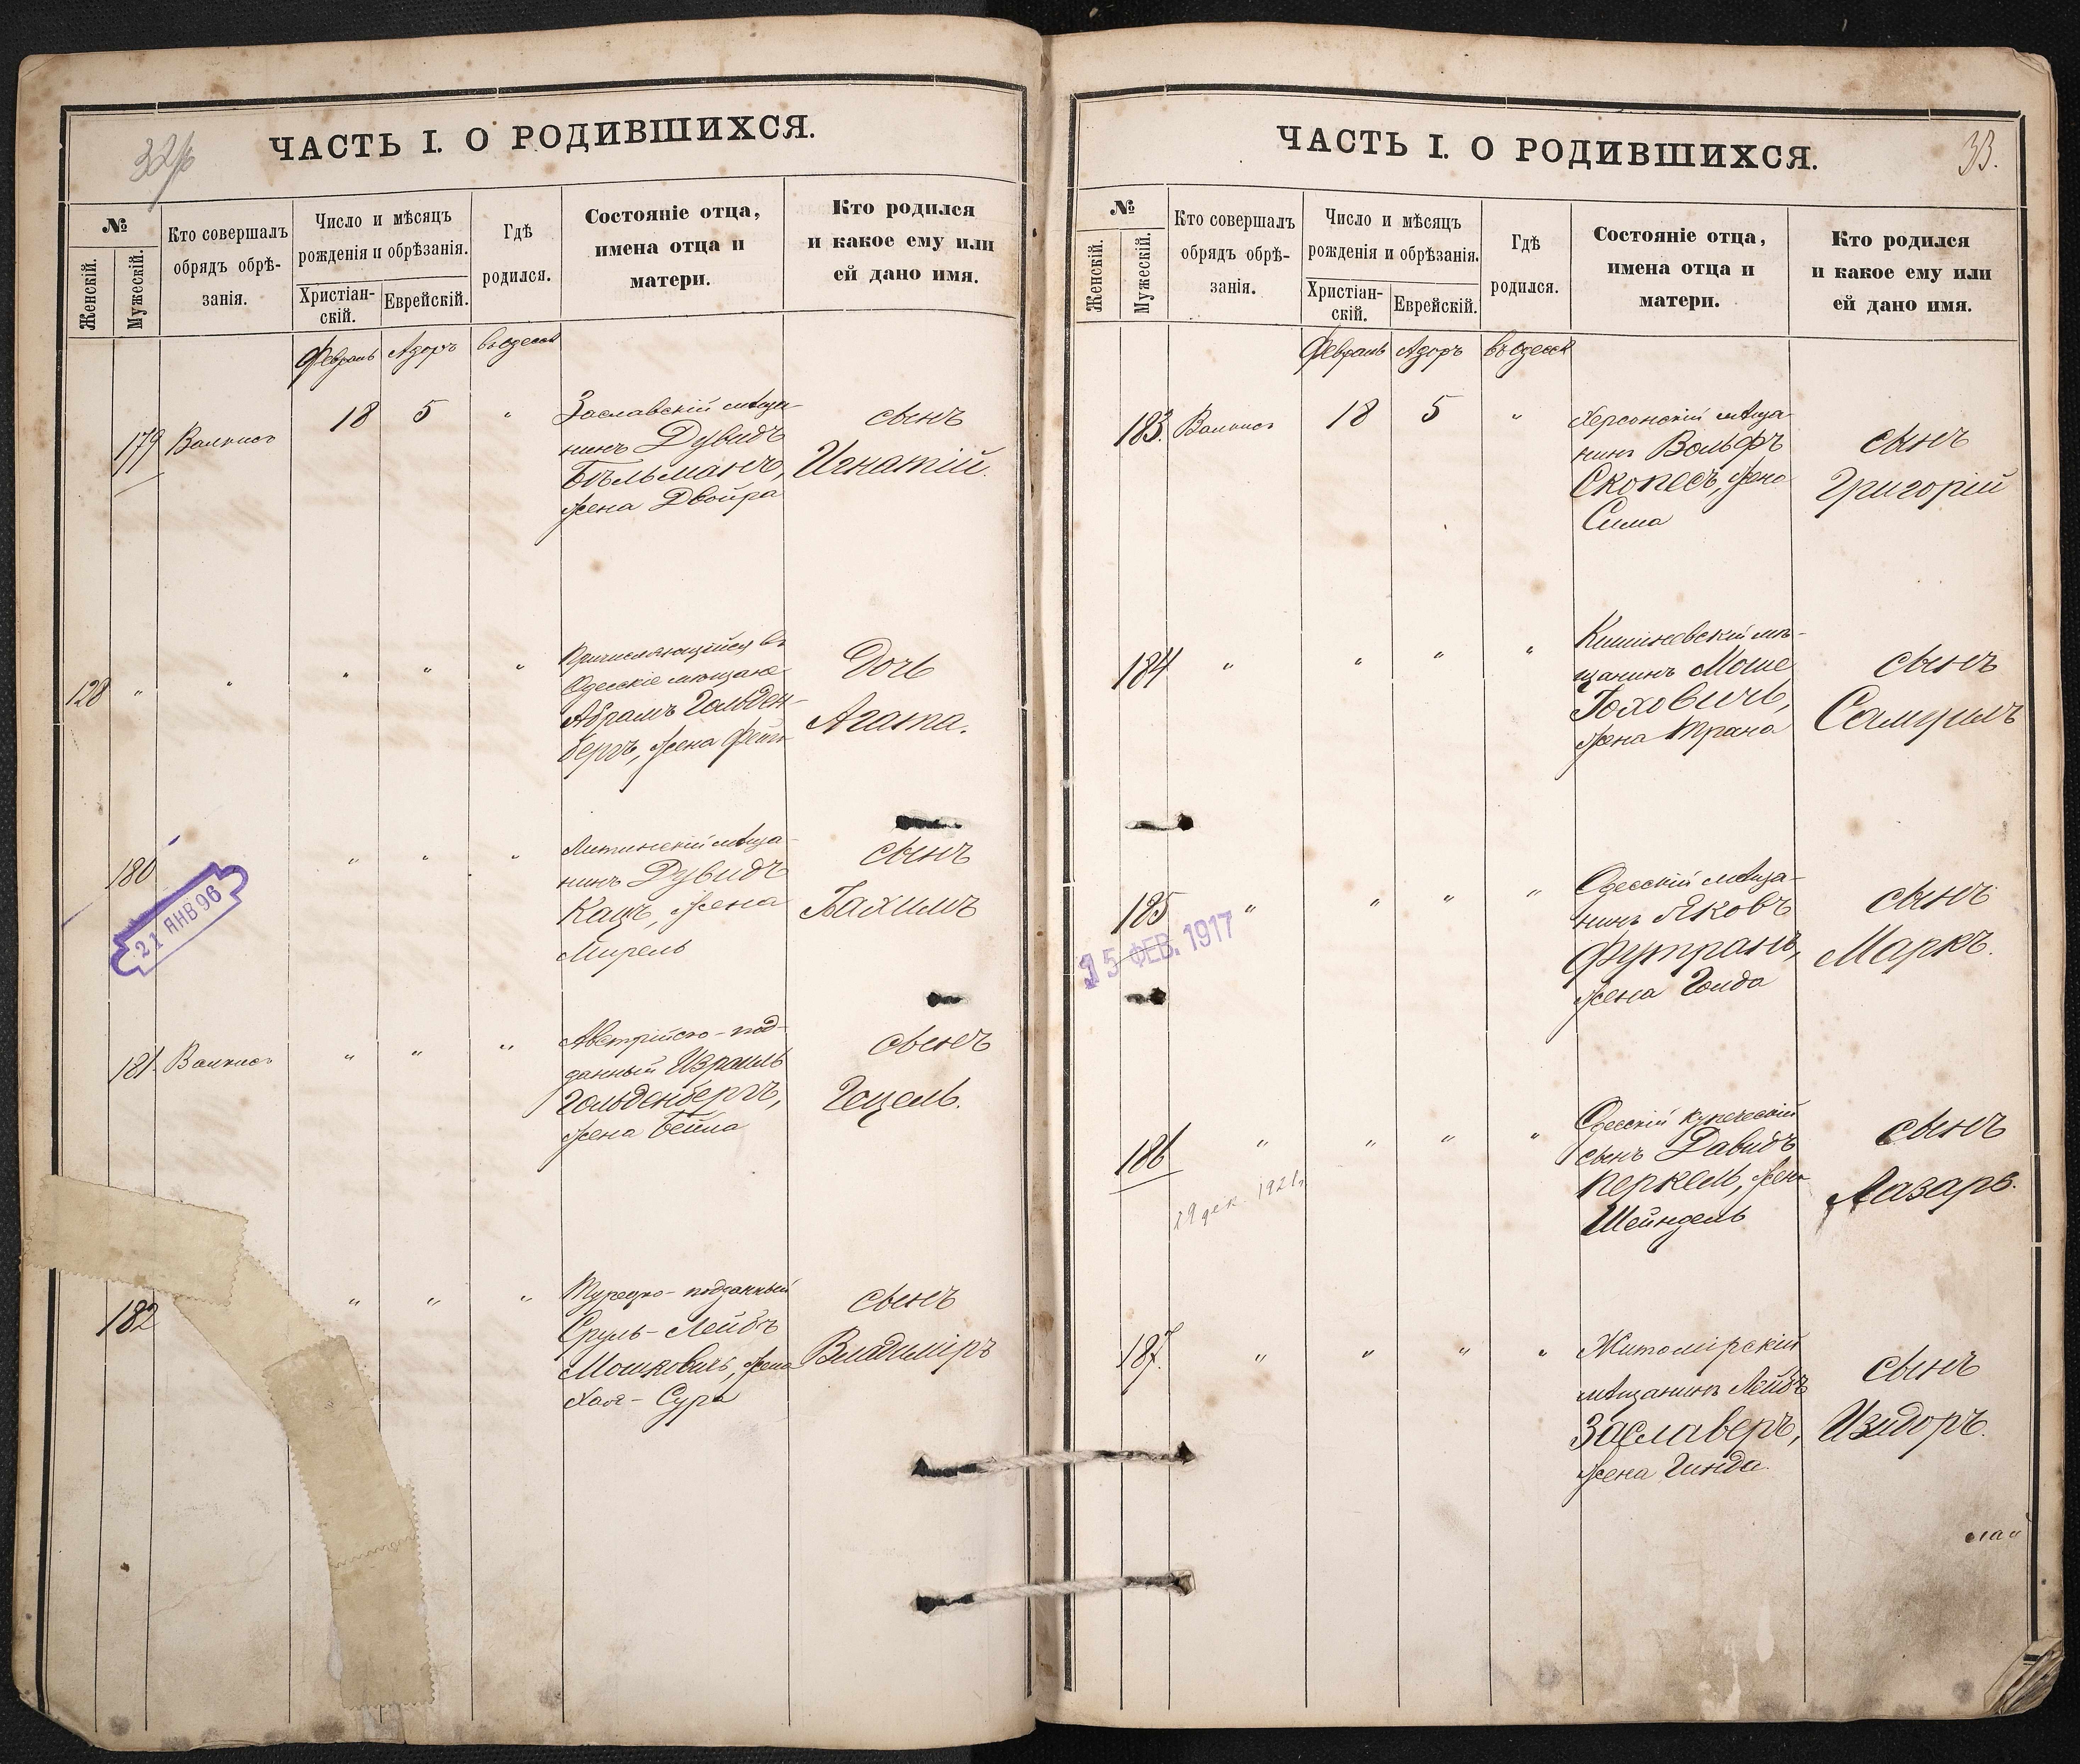 32/б
ЧАСТЬ I. О РОДИВШИХСЯ.
№
Женскій.
Мужескій.
Кто совершалъ
обрядъ обрѣ-
занія.
Число и мѣсяцъ
рожденія и обрѣзанія.
Христіан-
скій.
Еврейскій.
Гдѣ
родился.
Состояніе отца,
имена отца и
матери.
Кто родился
и какое ему или
ей дано имя.
Февраль Адоръ въ Одессѣ
179 Валкисъ 18 5 "
Заславскій мѣща-
нинъ Дувидъ
Бѣльманъ,
жена Двойра
сынъ
Игнатій.
128 " " " " "
Причисляющійся въ
Одесскіе мѣщане
Абрамъ Гольден-
бергъ, жена
Дочь
Агата.
180 " " "
21 ЯНВ 96
Литинскій мѣща-
нинъ Дувидъ
Кацъ, жена
Мирель
сынъ
Іахимъ
181. Валкисъ " " "
Австрійско-под-
данный Израиль
Гольденбергъ,
жена Бейла
сынъ
Гецель.
182 " " "
Турецко-подданный
Сруль-Лейбъ
Мошковичъ, жена
Хая-Сура
сынъ
Владиміръ
33.
ЧАСТЬ I. О РОДИВШИХСЯ.
№
Женскій.
Мужескій.
Кто совершалъ
обрядъ обрѣ-
занія.
Число и мѣсяцъ
рожденія и обрѣзанія.
Христіан-
скій.
Еврейскій.
Гдѣ
родился.
Состояніе отца,
имена отца и
матери.
Кто родился
и какое ему или
ей дано имя.
Февраль Адоръ въ Одессѣ
183. Валкисъ 18 5 "
Херсонскій мѣща-
нинъ Вольфъ
Скопецъ, жена
Сима
сынъ
Григорій
184 " " " "
Кишиневскій мѣ-
щанинъ Моше
Іоховичъ,
жена Трана
сынъ
Самуилъ
185 " " " "
15 ФЕВ. 1917
Одесскій мѣща-
нинъ Яковъ
Футранъ,
жена Голда
сынъ
Маркъ.
186 " " " "
19 дек. 1921г.
Одесскій купеческій
сынъ Давидъ
Перкель, жена
Шейндель
сынъ
Лазарь.
187. " " " "
Житомірскій
мѣщанинъ Лейбъ
Заславеръ,
жена Гинда.
сынъ
Изидоръ.